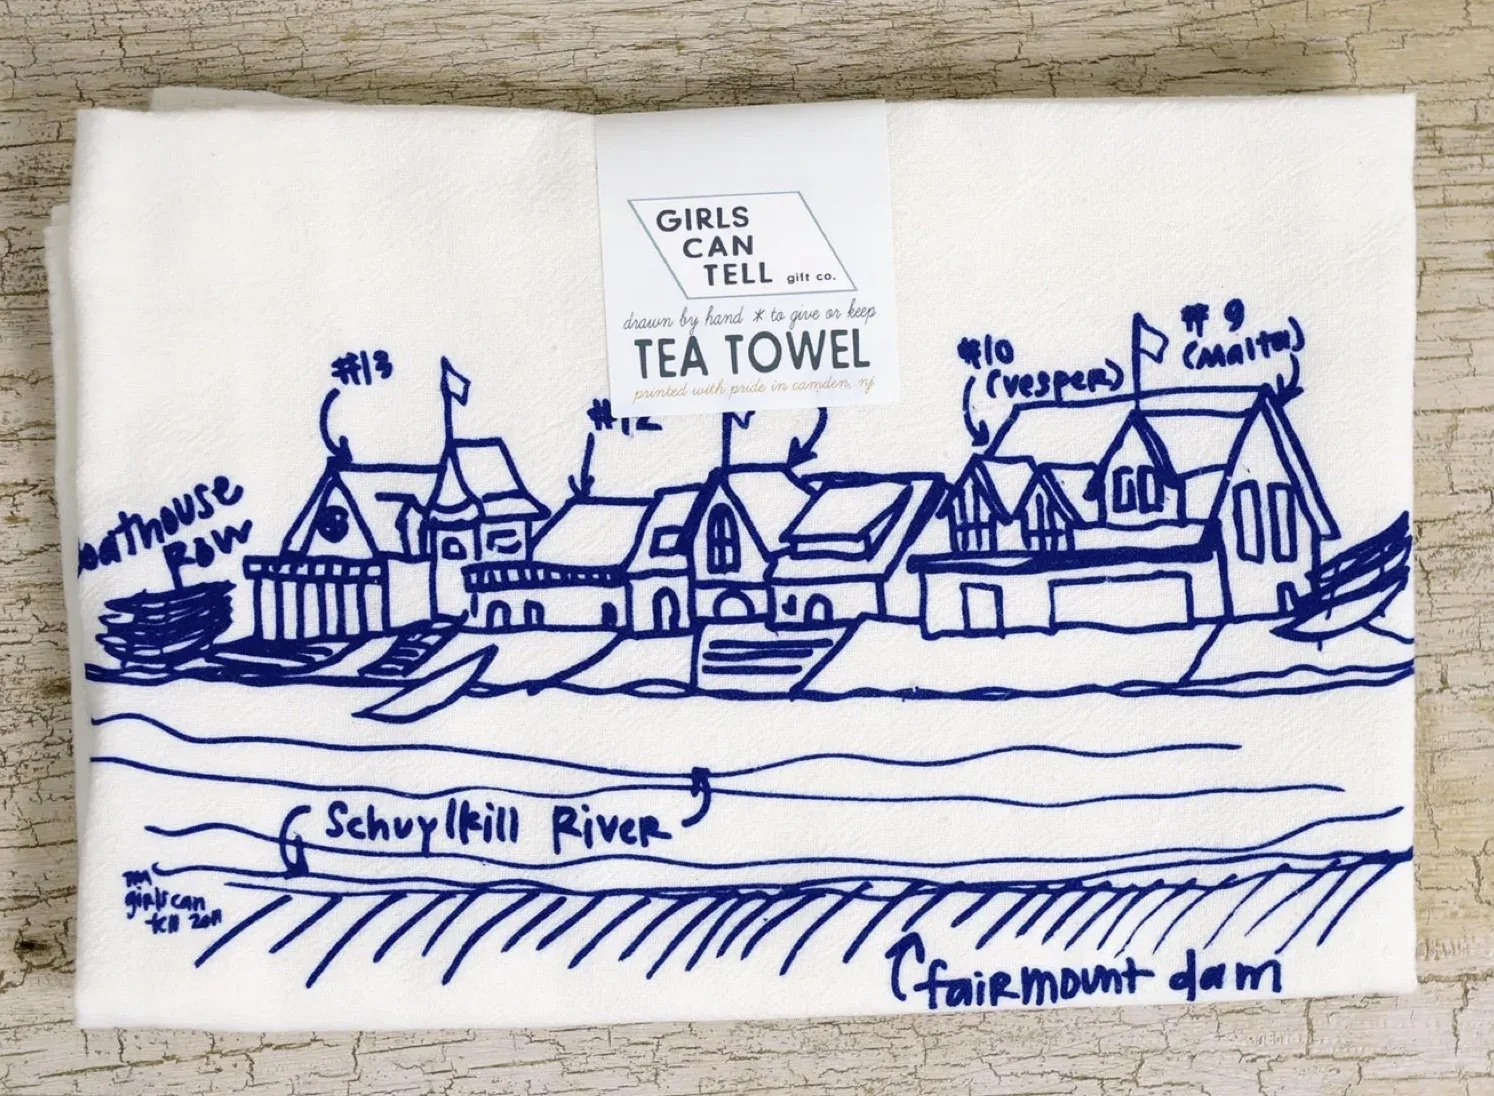 GIRLS
CAN
TELL gift co.
drawn by hand * to give or keep
TEA TOWEL
printed with pride in camden, nj
#13
#12
#10
(vesper)
#9
(Malta)
oathouse
Row
Schuylkill River
girls can
tell 2011
fairmount dam